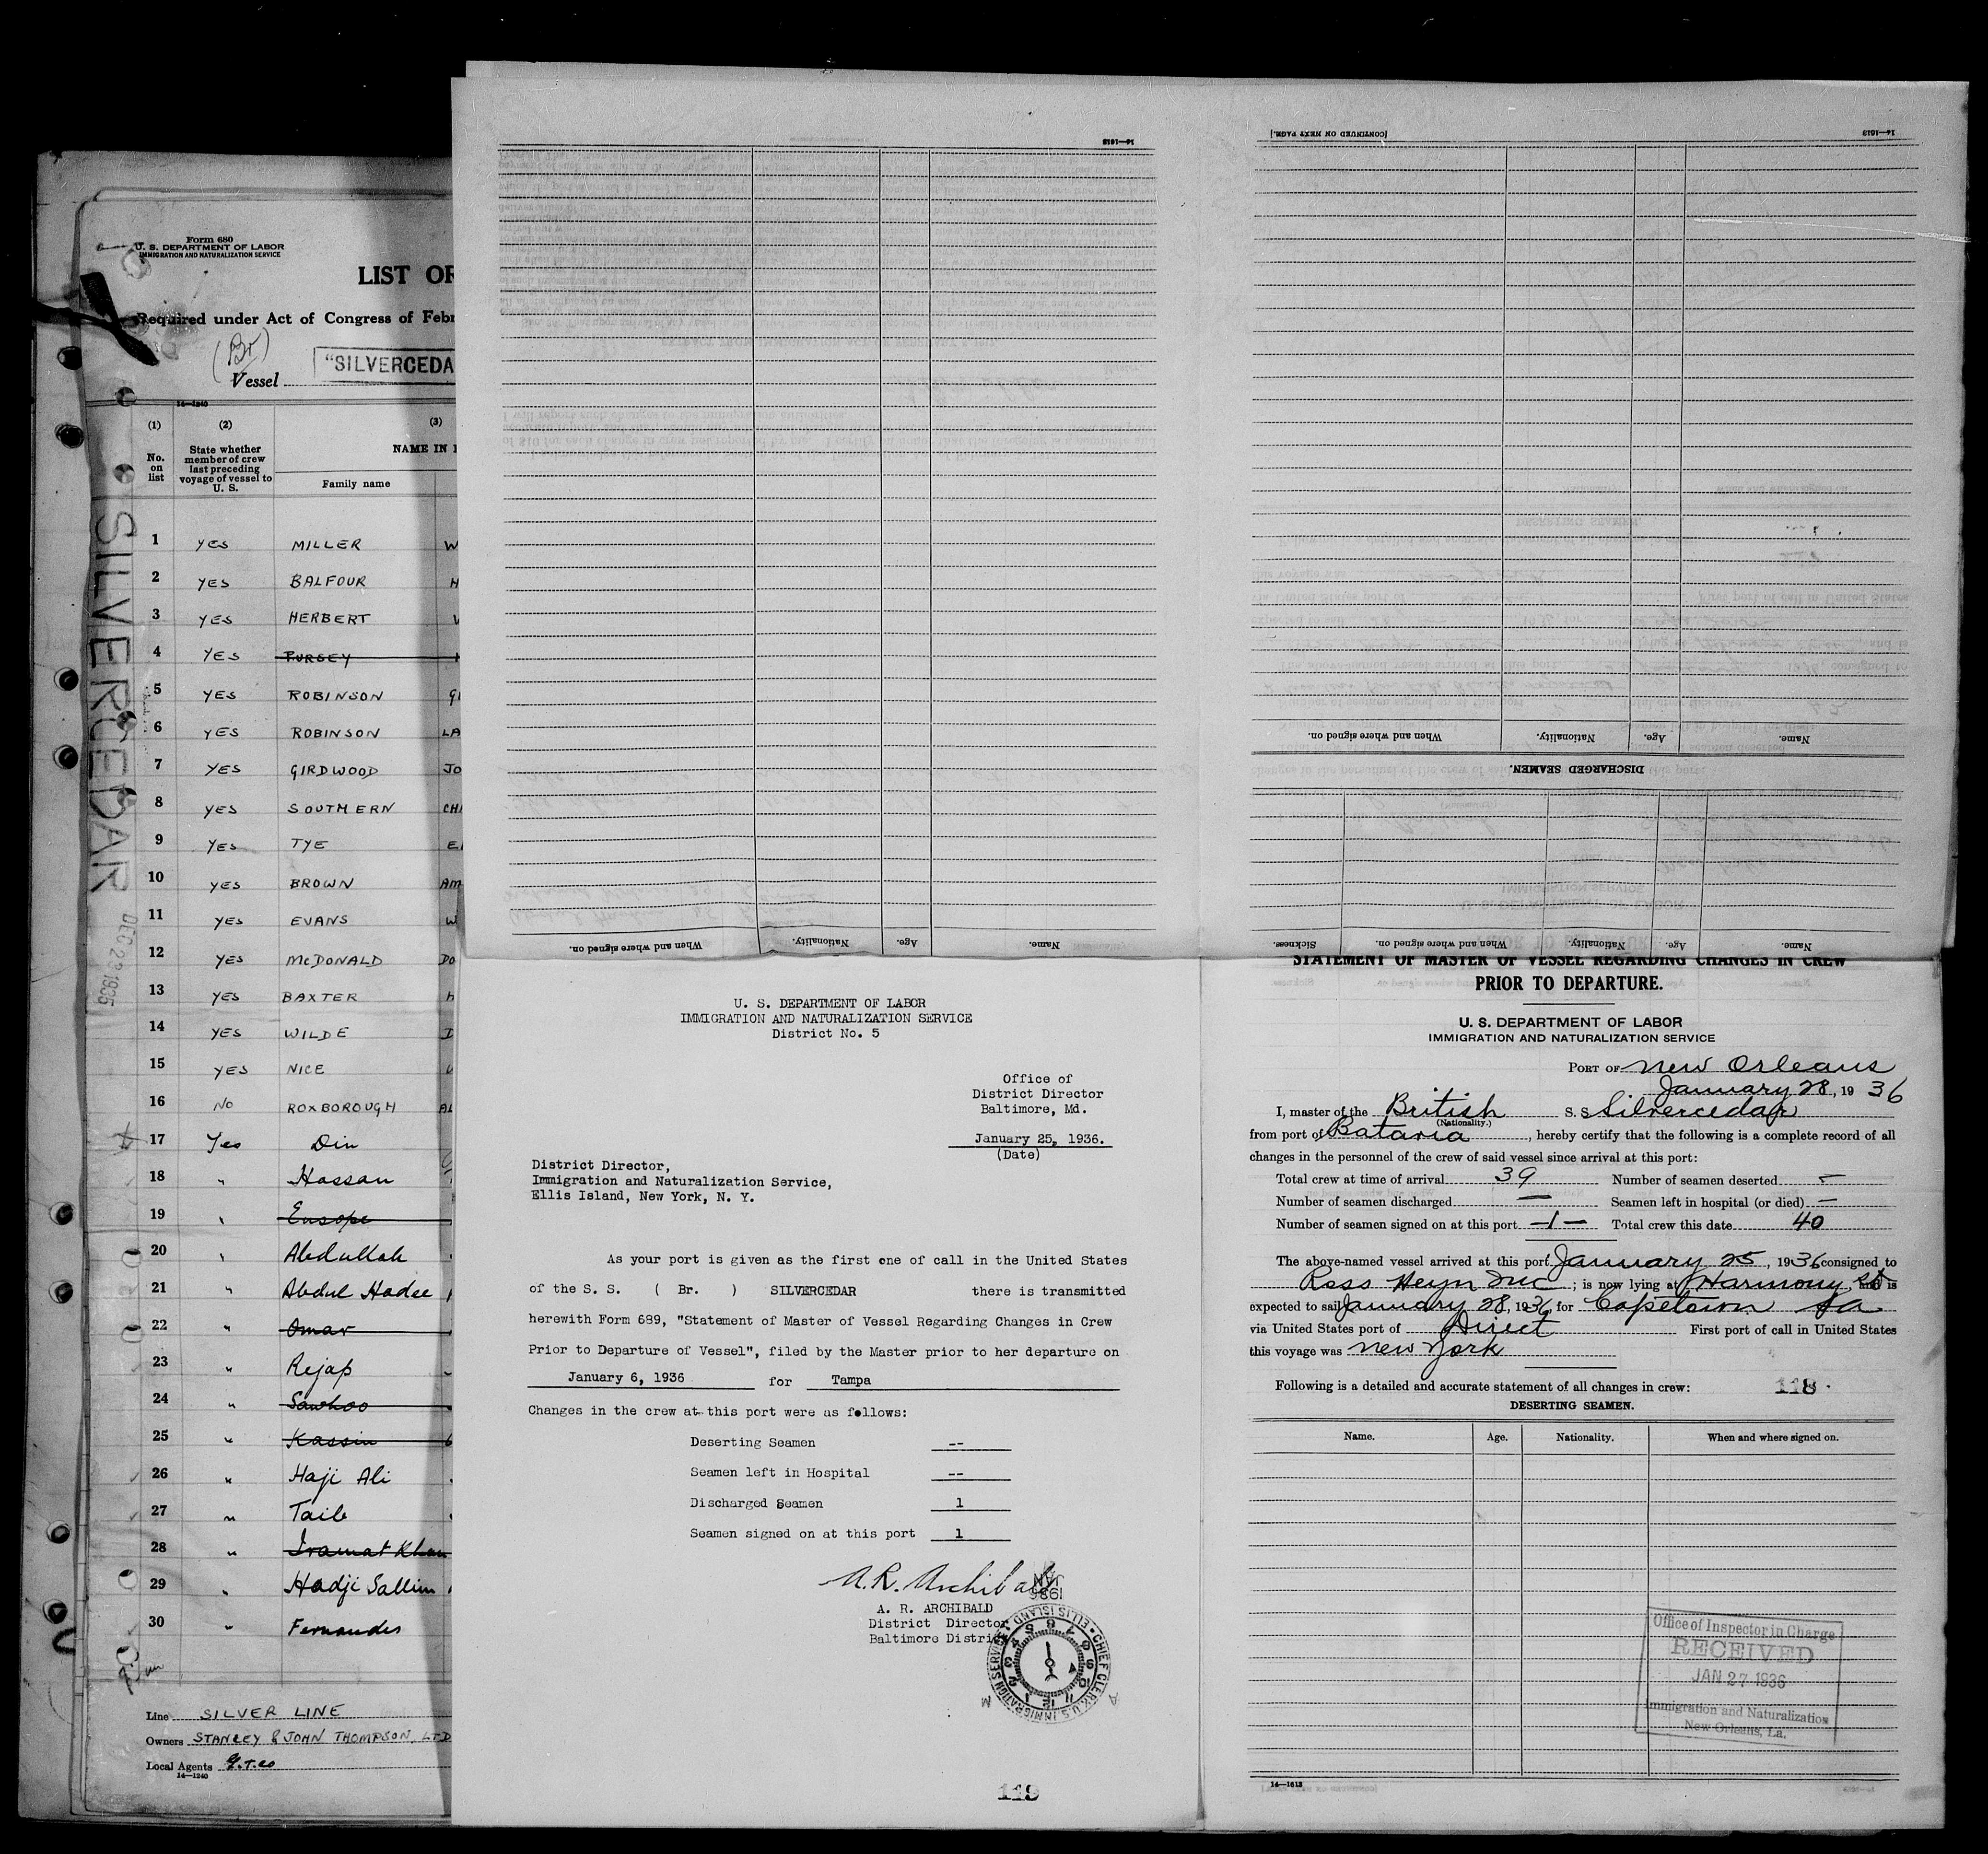 Form 680
U. S. DEPARTMENT OF LABOR
IMMIGRATION AND NATURALIZATION SERVICE
LIST OF
Required under Act of Congress of Febr
(Br)
Vessel "SILVERCEDA
14—1240
(1) (2) (3)
No. on list
State whether member of crew last preceding voyage of vessel to U. S.
NAME IN
Family name
SILVERCEDAR
DEC 23 1935
1 YES MILLER W
2 YES BALFOUR H
3 YES HERBERT
4 YES PURSEY
5 YES ROBINSON
6 YES ROBINSON LA
7 YES GIRDWOOD JO
8 YES SOUTHERN CH
9 YES TYE E
10 YES BROWN AM
11 YES EVANS W
12 YES McDONALD DO
13 YES BAXTER H
14 YES WILDE D
15 YES NICE
16 NO ROXBOROUGH AL
17 Yes Din
18 " Hassan
19 " Eusope
20 " Abdullah
21 " Abdul Hadee
22 " Omar
23 " Rejap
24 " Sawhoo
25 " Kassim
26 " Haji Ali
27 " Taib
28 " Iramat Khan
29 " Hadji Sallim
30 " Fernandes
Line SILVER LINE
Owners STANLEY & JOHN THOMPSON, LTD
Local Agents
14—1240
14—1613
When and where signed on. Nationality. Age. Name.
[CONTINUED ON NEXT PAGE.]
14—1613
When and where signed on. Nationality. Age. Name.
DISCHARGED SEAMEN.
Sickness. When and where signed on. Nationality. Age. Name.
U. S. DEPARTMENT OF LABOR
IMMIGRATION AND NATURALIZATION SERVICE
District No. 5
Office of
District Director
Baltimore, Md.
January 25, 1936.
(Date)
District Director,
Immigration and Naturalization Service,
Ellis Island, New York, N. Y.
As your port is given as the first one of call in the United States
of the S. S. ( Br. ) SILVERCEDAR there is transmitted
herewith Form 689, "Statement of Master of Vessel Regarding Changes in Crew
Prior to Departure of Vessel", filed by the Master prior to her departure on
January 6, 1936 for Tampa
Changes in the crew at this port were as follows:
Deserting Seamen --
Seamen left in Hospital --
Discharged Seamen 1
Seamen signed on at this port 1
A. R. Archibald
A. R. ARCHIBALD
District Director
Baltimore District
JAN
1936
CHIEF CLERK U.S. IMMIGRATION SERVICE ELLIS ISLAND
119
STATEMENT OF MASTER OF VESSEL REGARDING CHANGES IN CREW
PRIOR TO DEPARTURE.
U. S. DEPARTMENT OF LABOR
IMMIGRATION AND NATURALIZATION SERVICE
PORT OF New Orleans
January 28, 1936
I, master of the British S. S. Silvercedar
(Nationality.)
from port of Batavia, hereby certify that the following is a complete record of all
changes in the personnel of the crew of said vessel since arrival at this port:
Total crew at time of arrival 39 Number of seamen deserted —
Number of seamen discharged — Seamen left in hospital (or died) —
Number of seamen signed on at this port —1— Total crew this date 40
The above-named vessel arrived at this port January 25, 1936 consigned to
Ross Heyn Inc; is now lying at Harmony St and is
expected to sail January 28, 1936, for Capetown SA
via United States port of Direct First port of call in United States
this voyage was New York
Following is a detailed and accurate statement of all changes in crew: 118
DESERTING SEAMEN.
Name. Age. Nationality. When and where signed on.
Office of Inspector in Charge
RECEIVED
JAN 27 1936
Immigration and Naturalization
New Orleans, La.
14—1613